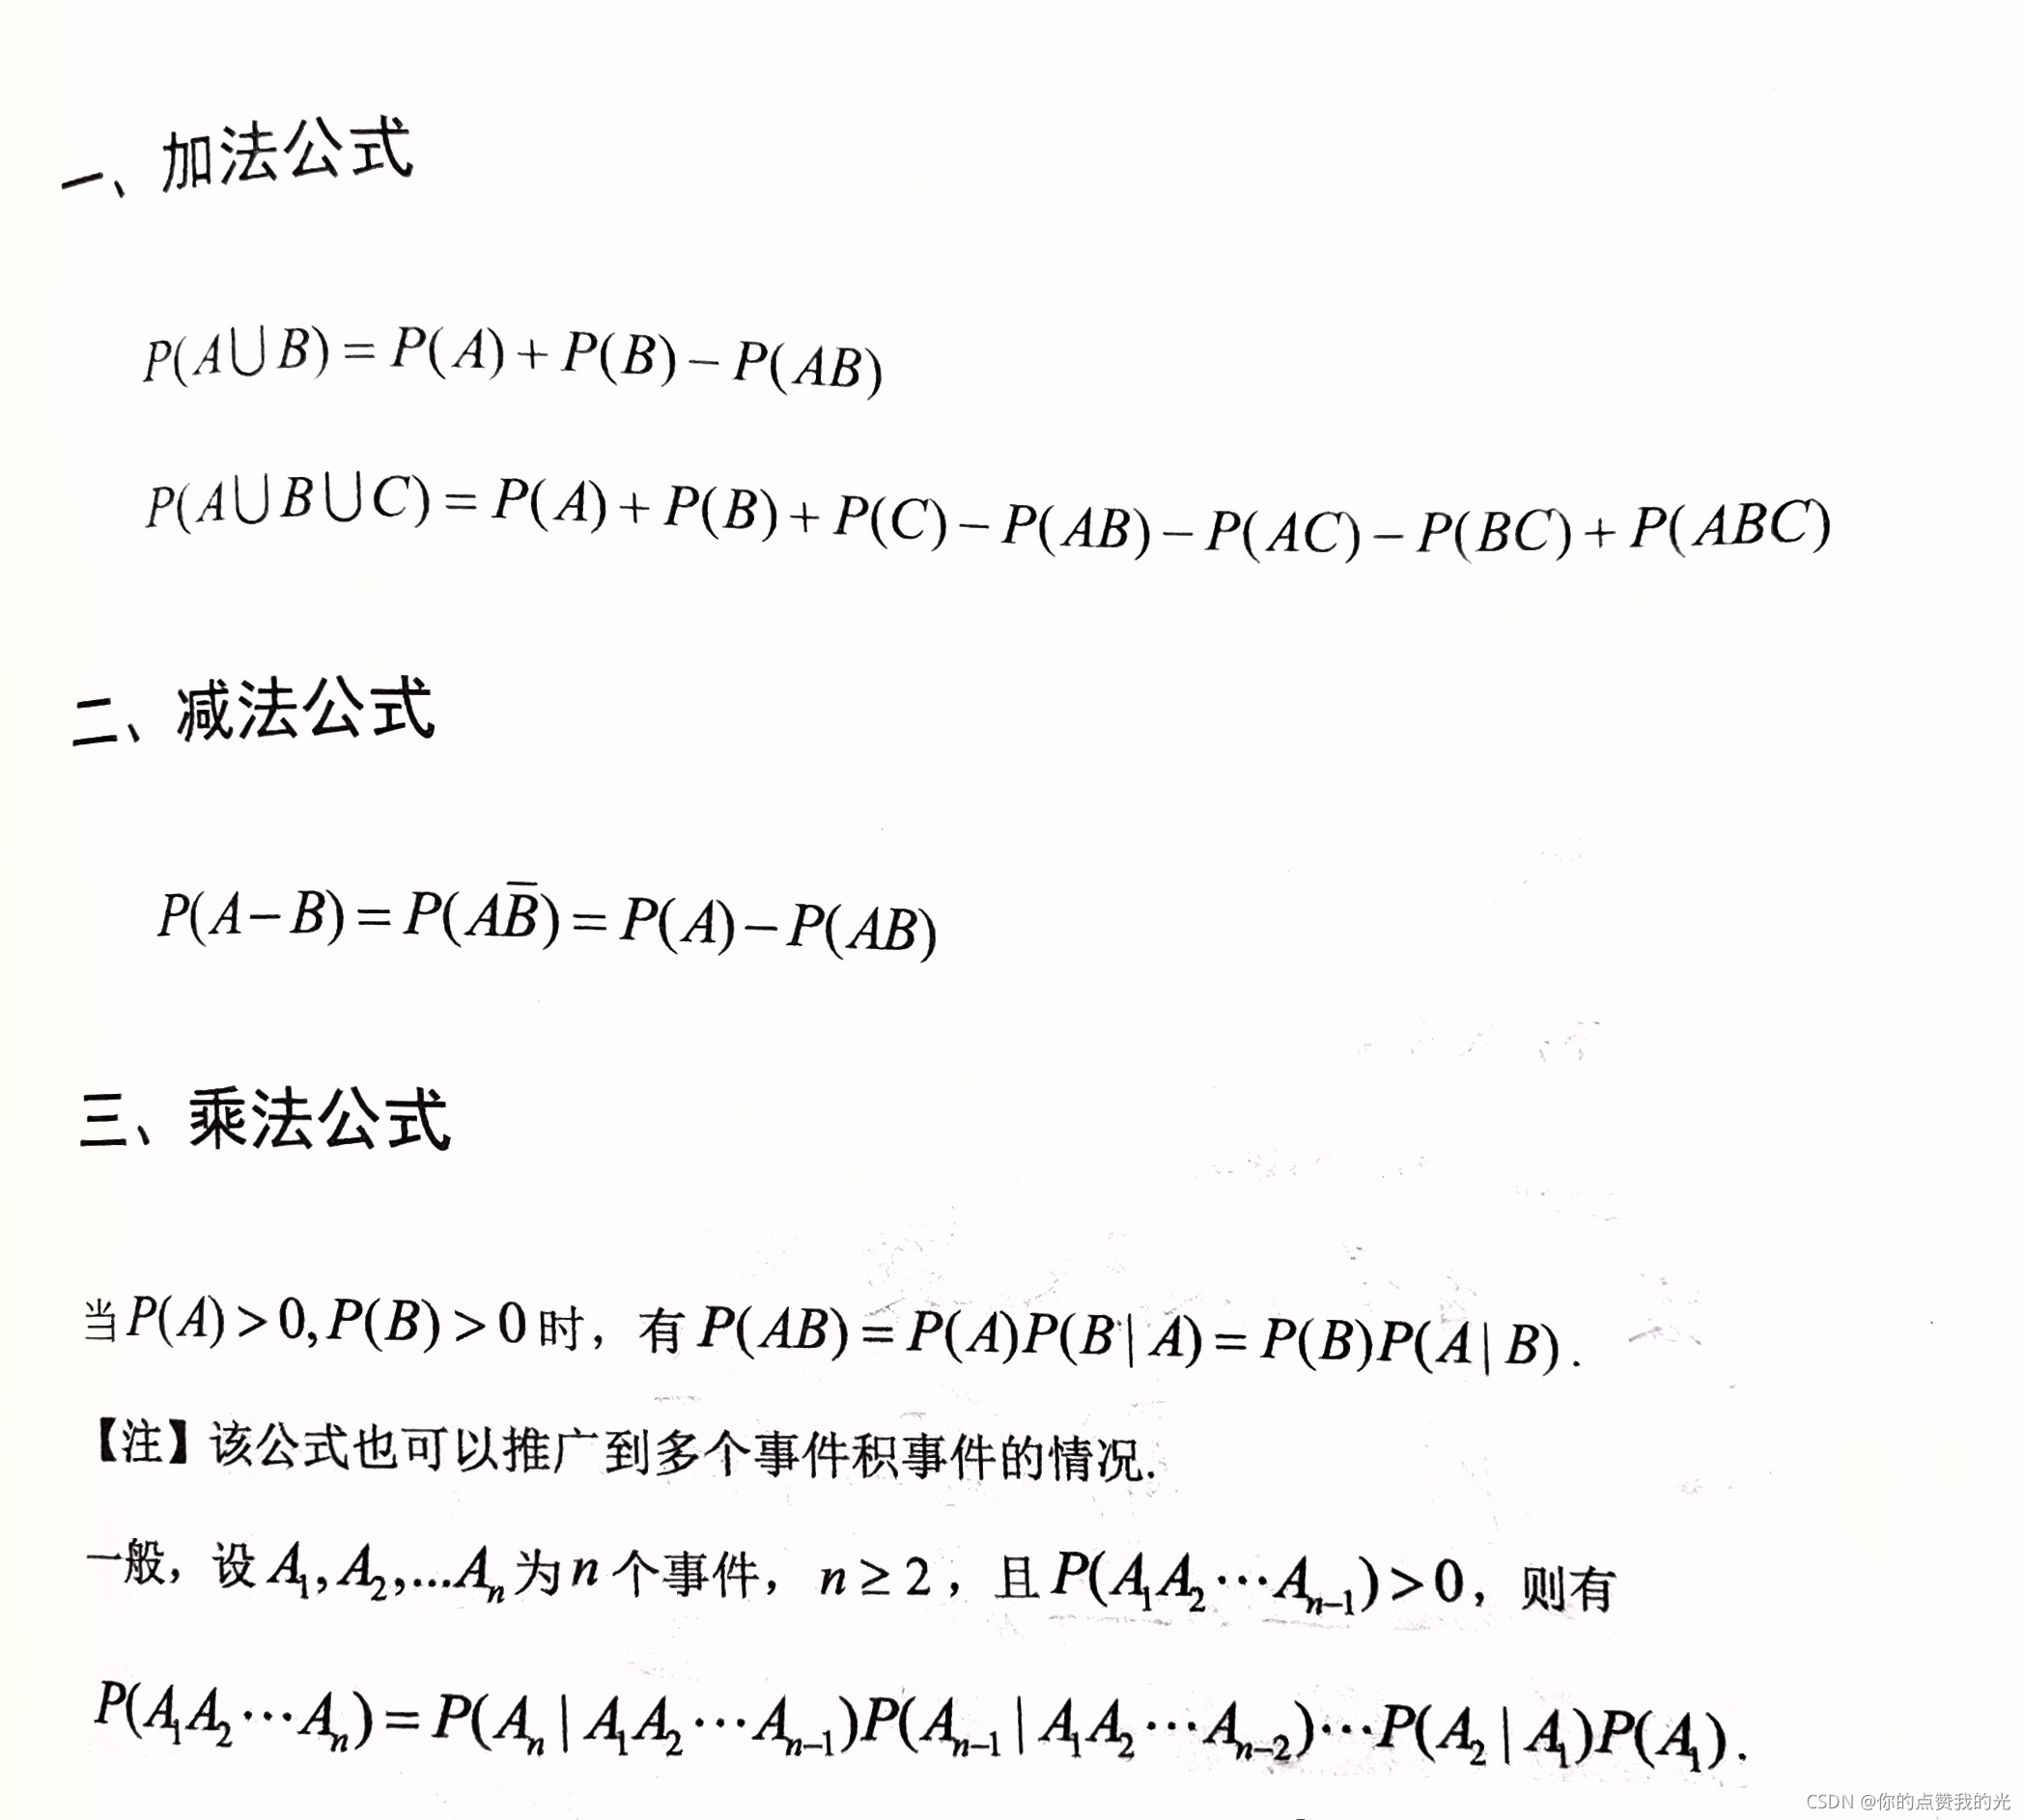 一、加法公式
P(A∪B)=P(A)+P(B)−P(AB)
P(A∪B∪C)=P(A)+P(B)+P(C)−P(AB)−P(AC)−P(BC)+P(ABC)
二、减法公式
P(A−B)=P(AB̅)=P(A)−P(AB)
三、乘法公式
当P(A)>0,P(B)>0时，有P(AB)=P(A)P(B|A)=P(B)P(A|B).
【注】该公式也可以推广到多个事件积事件的情况.
一般，设A₁,A₂,...Aₙ为n个事件，n≥2，且P(A₁A₂⋯Aₙ₋₁)>0，则有
P(A₁A₂⋯Aₙ)=P(Aₙ|A₁A₂⋯Aₙ₋₁)P(Aₙ₋₁|A₁A₂⋯Aₙ₋₂)⋯P(A₂|A₁)P(A₁).
CSDN @你的点赞我的光